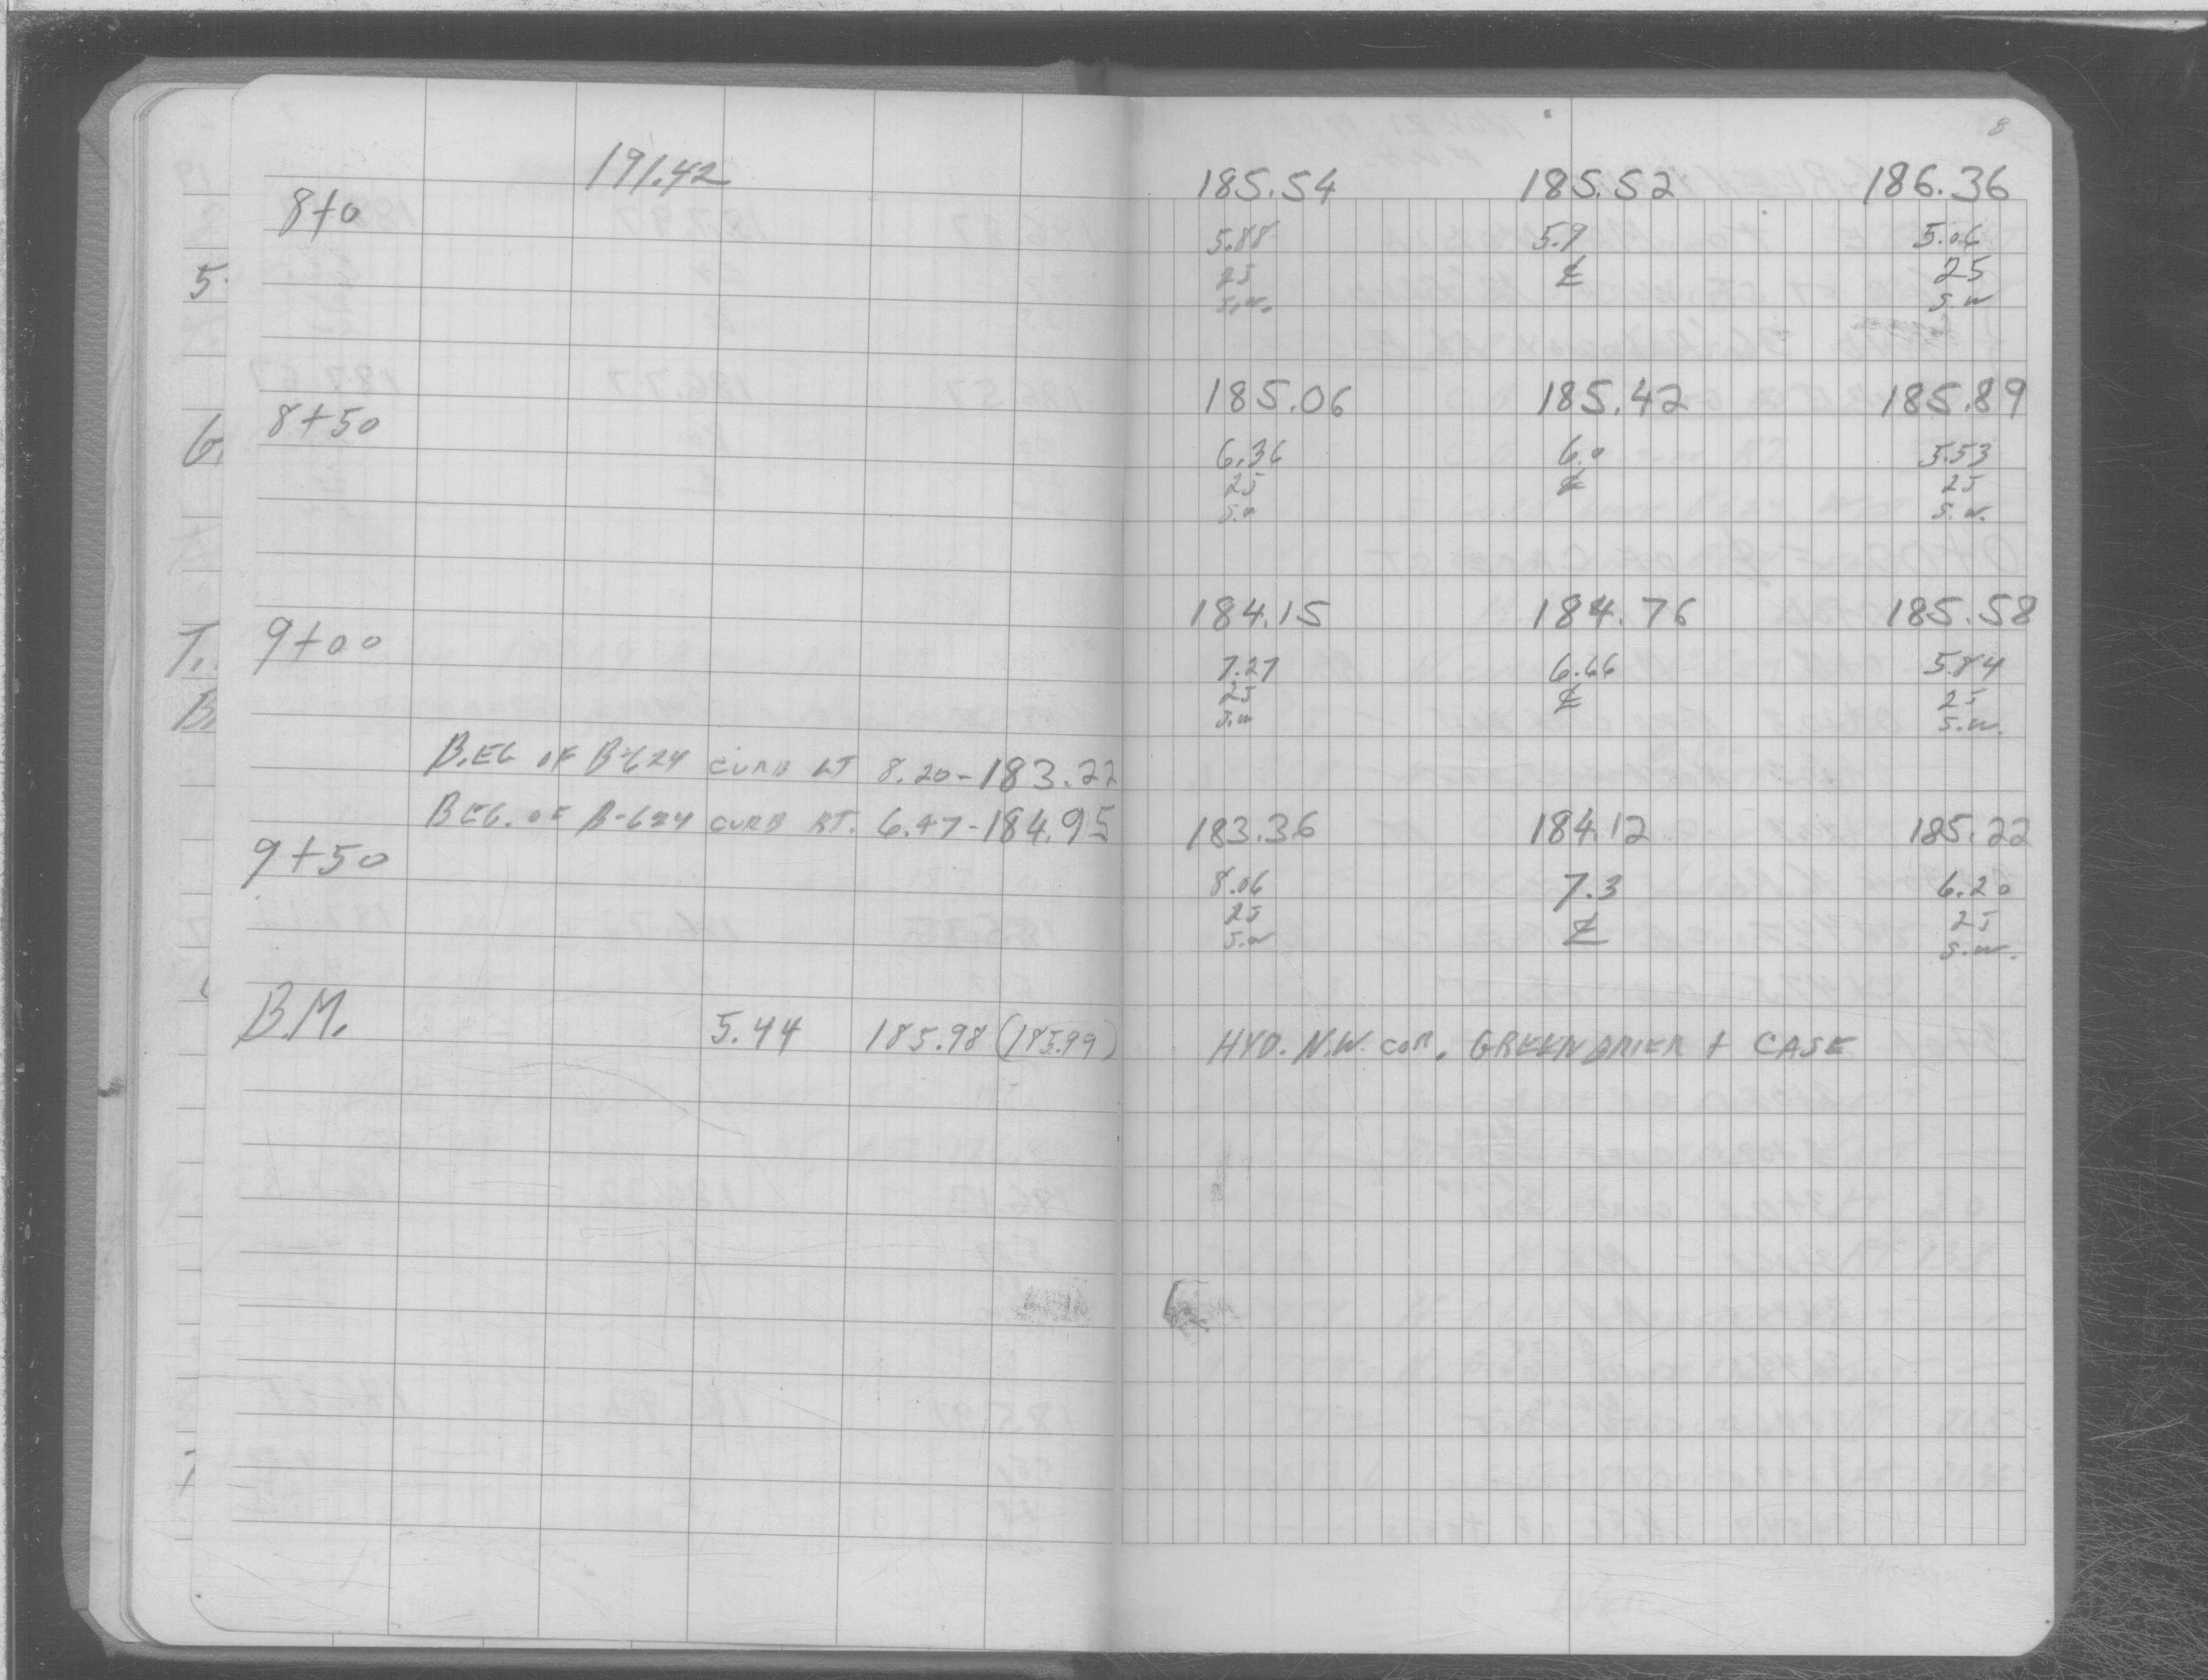 8
191.42
185.54 185.52 186.36
8+0
5.88 5.9 5.06
25 ℄ 25
S.W. S.W
185.06 185.42 185.89
8+50
6.36 6.0 5.53
25 ℄ 25
S.W S.W.
184.15 184.76 185.58
9+00
7.27 6.66 5.84
25 ℄ 25
S.W S.W.
BEG OF B-624 CURB LT 8.20-183.22
BEG. OF B-624 CURB RT. 6.47-184.95
183.36 184.12 185.22
9+50
8.06 7.3 6.20
25 ℄ 25
S.W S.W.
B.M. 5.44 185.98 (185.99) HYD. N.W. COR. GREENBRIER & CASE